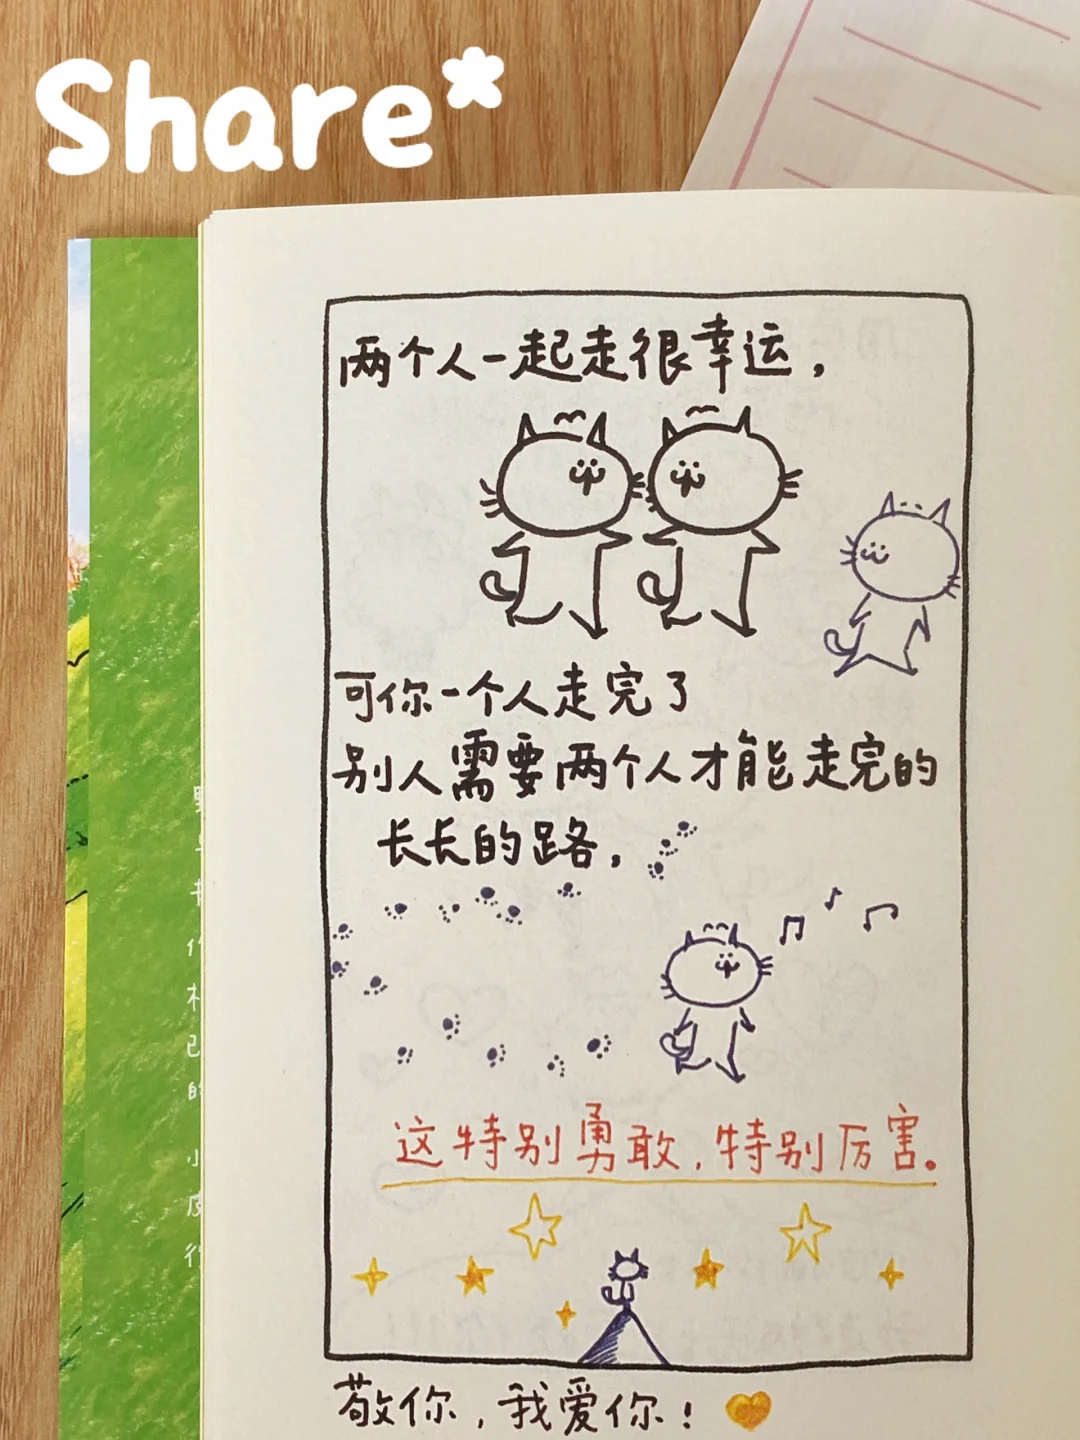 Share*
两个人一起走很幸运，
可你一个人走完了
别人需要两个人才能走完的
长长的路，
这特别勇敢，特别厉害。
敬你，我爱你！